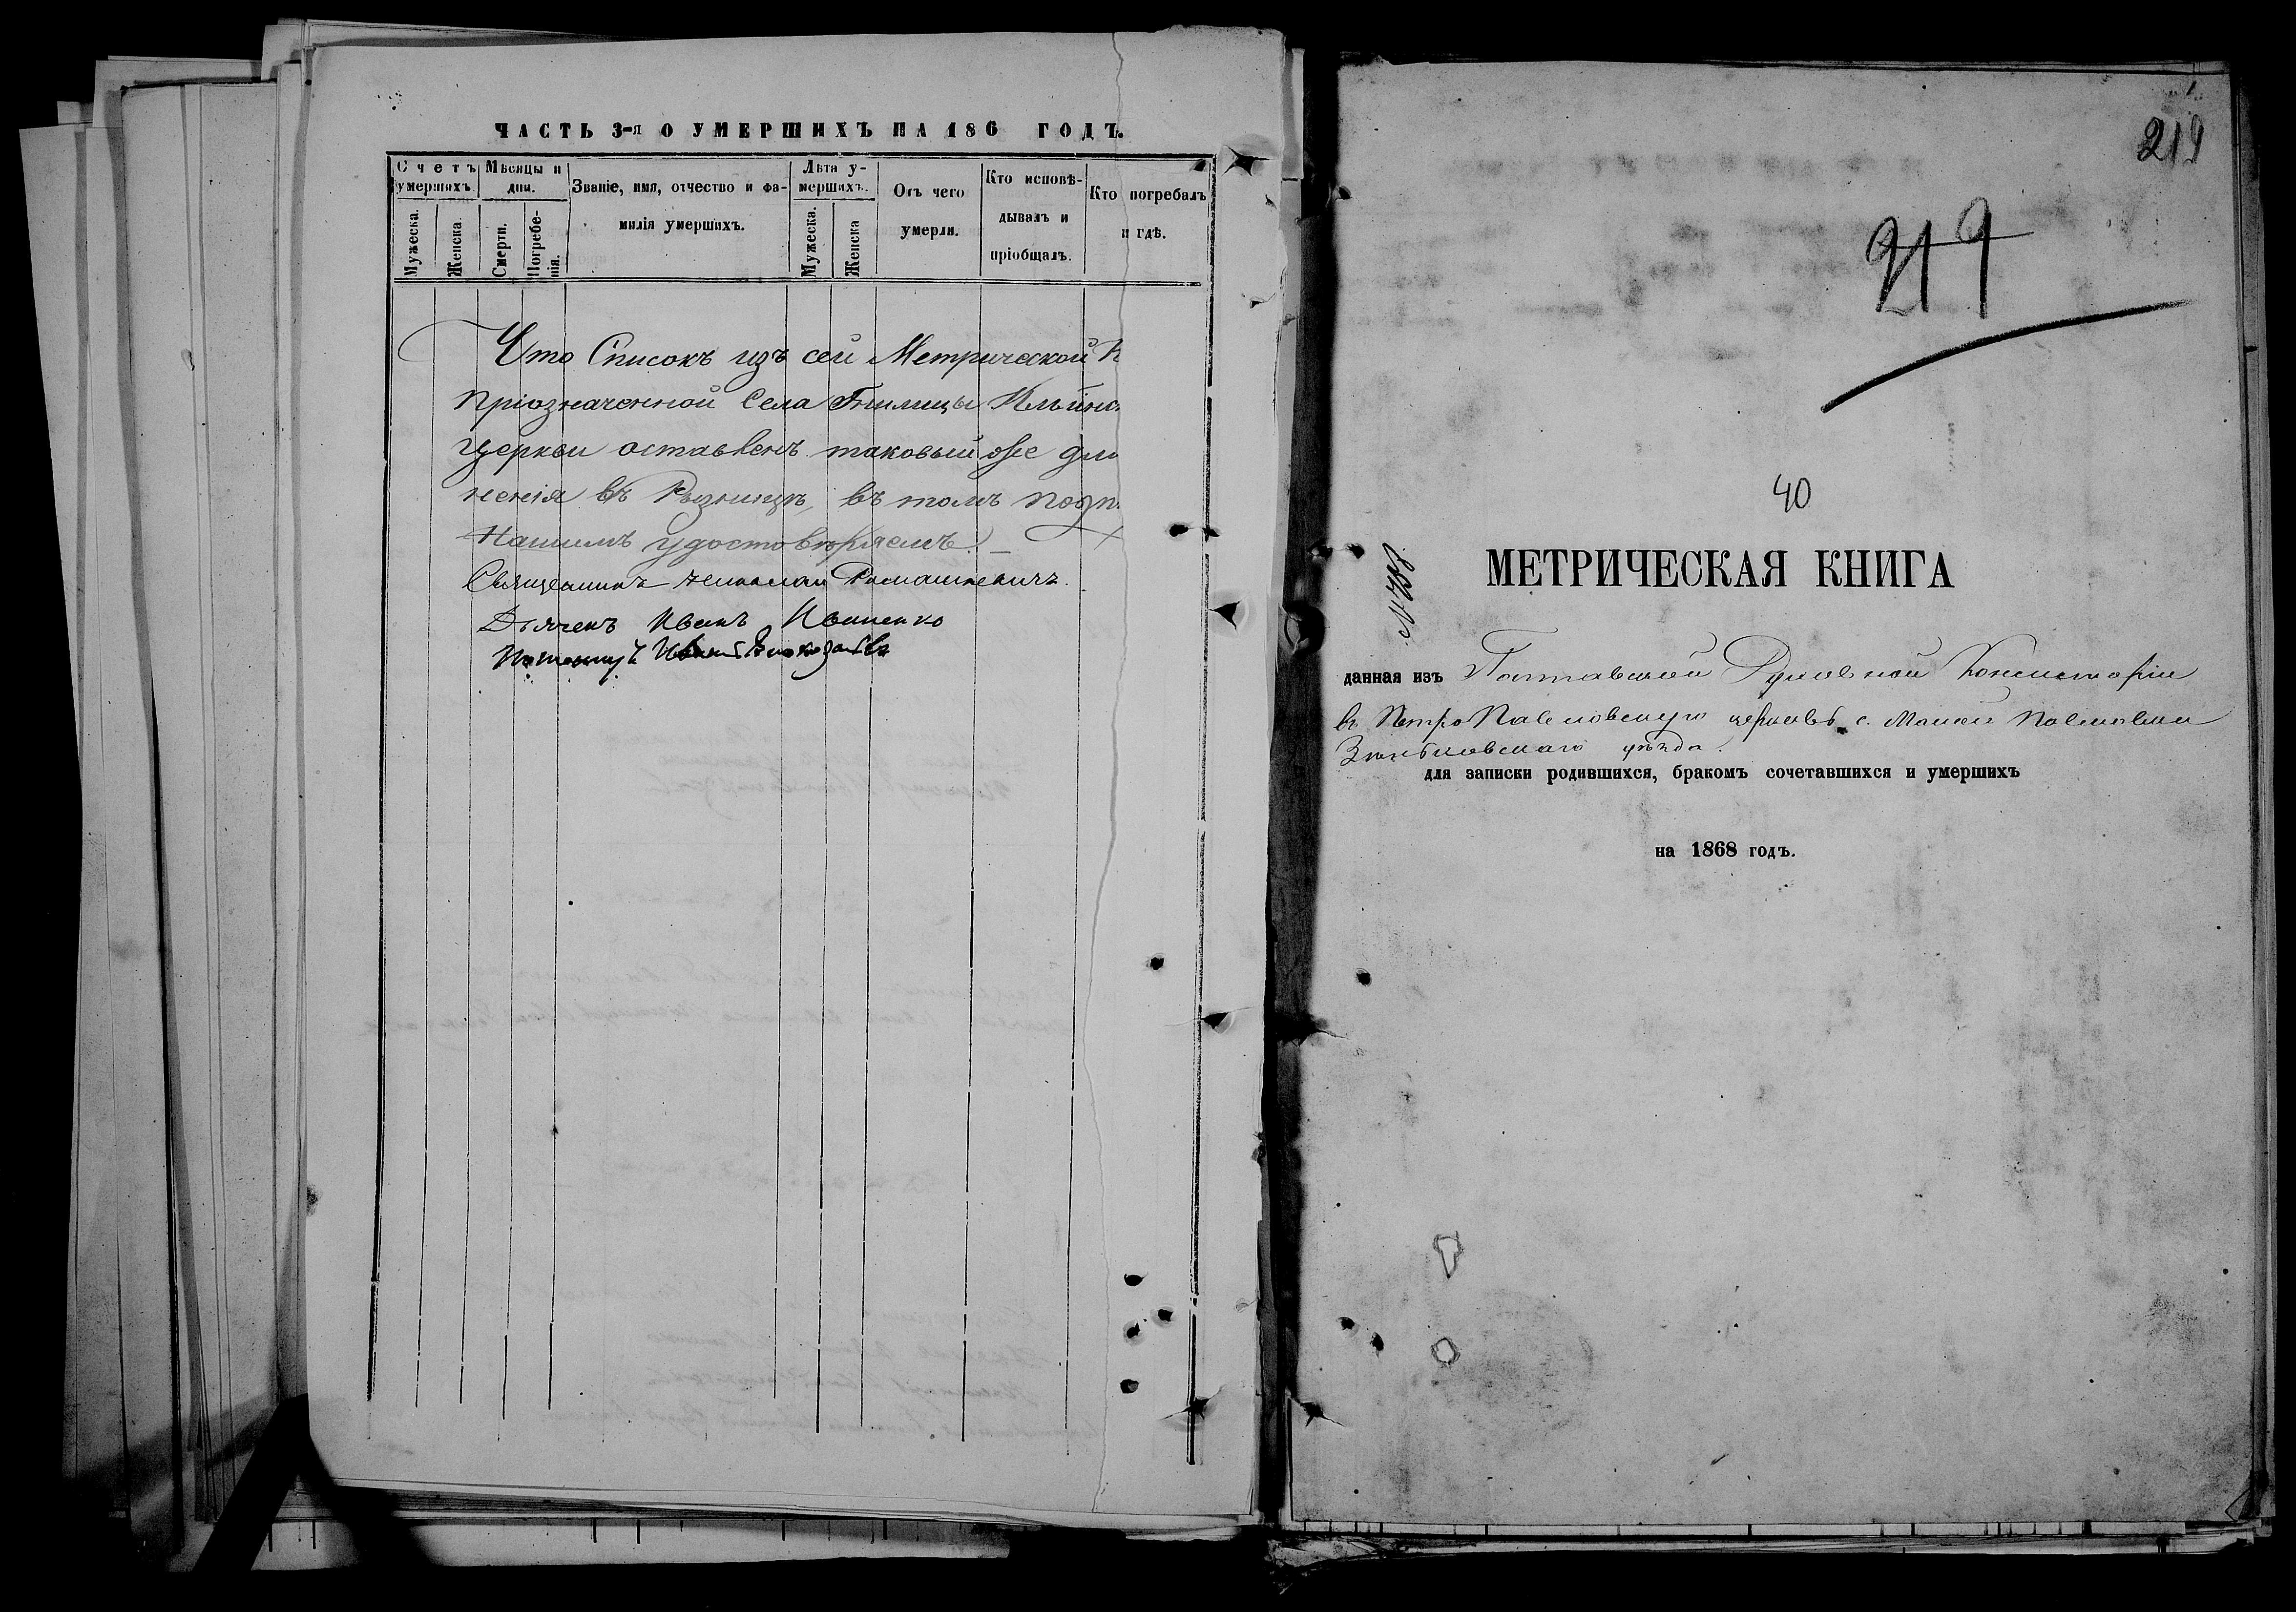 ЧАСТЬ 3-я О УМЕРШИХЪ НА 186 ГОДЪ.
Счетъ умершихъ.
Мужеска.
Женска.
Мѣсяцы и дни.
Смерти.
Погребенія.
Званіе, имя, отчество и фамилія умершихъ.
Лѣта умершихъ.
Мужеска.
Женска
Отъ чего умерли.
Кто исповѣдывалъ и пріобщалъ.
Кто погребалъ и гдѣ.
Что Списокъ изъ сей Метрической К
пріозначенной Села Гнилицы Ильинс
церкви оставленъ таковый же для
ненія въ Ризницѣ, въ томъ подп
Нашимъ удостовѣряемъ. —
Священникъ Николай Ромашкевичъ.
Дьячекъ Иванъ Иваненко
Пономарь Иванъ
219
219
40
МЕТРИЧЕСКАЯ КНИГА
№ 788
данная изъ Полтавской Духовной Консисторіи
въ Петро Павловскую церковь с. Малой Павловки
Зѣньковскаго уѣзда.
для записки родившихся, бракомъ сочетавшихся и умершихъ
на 1868 годъ.